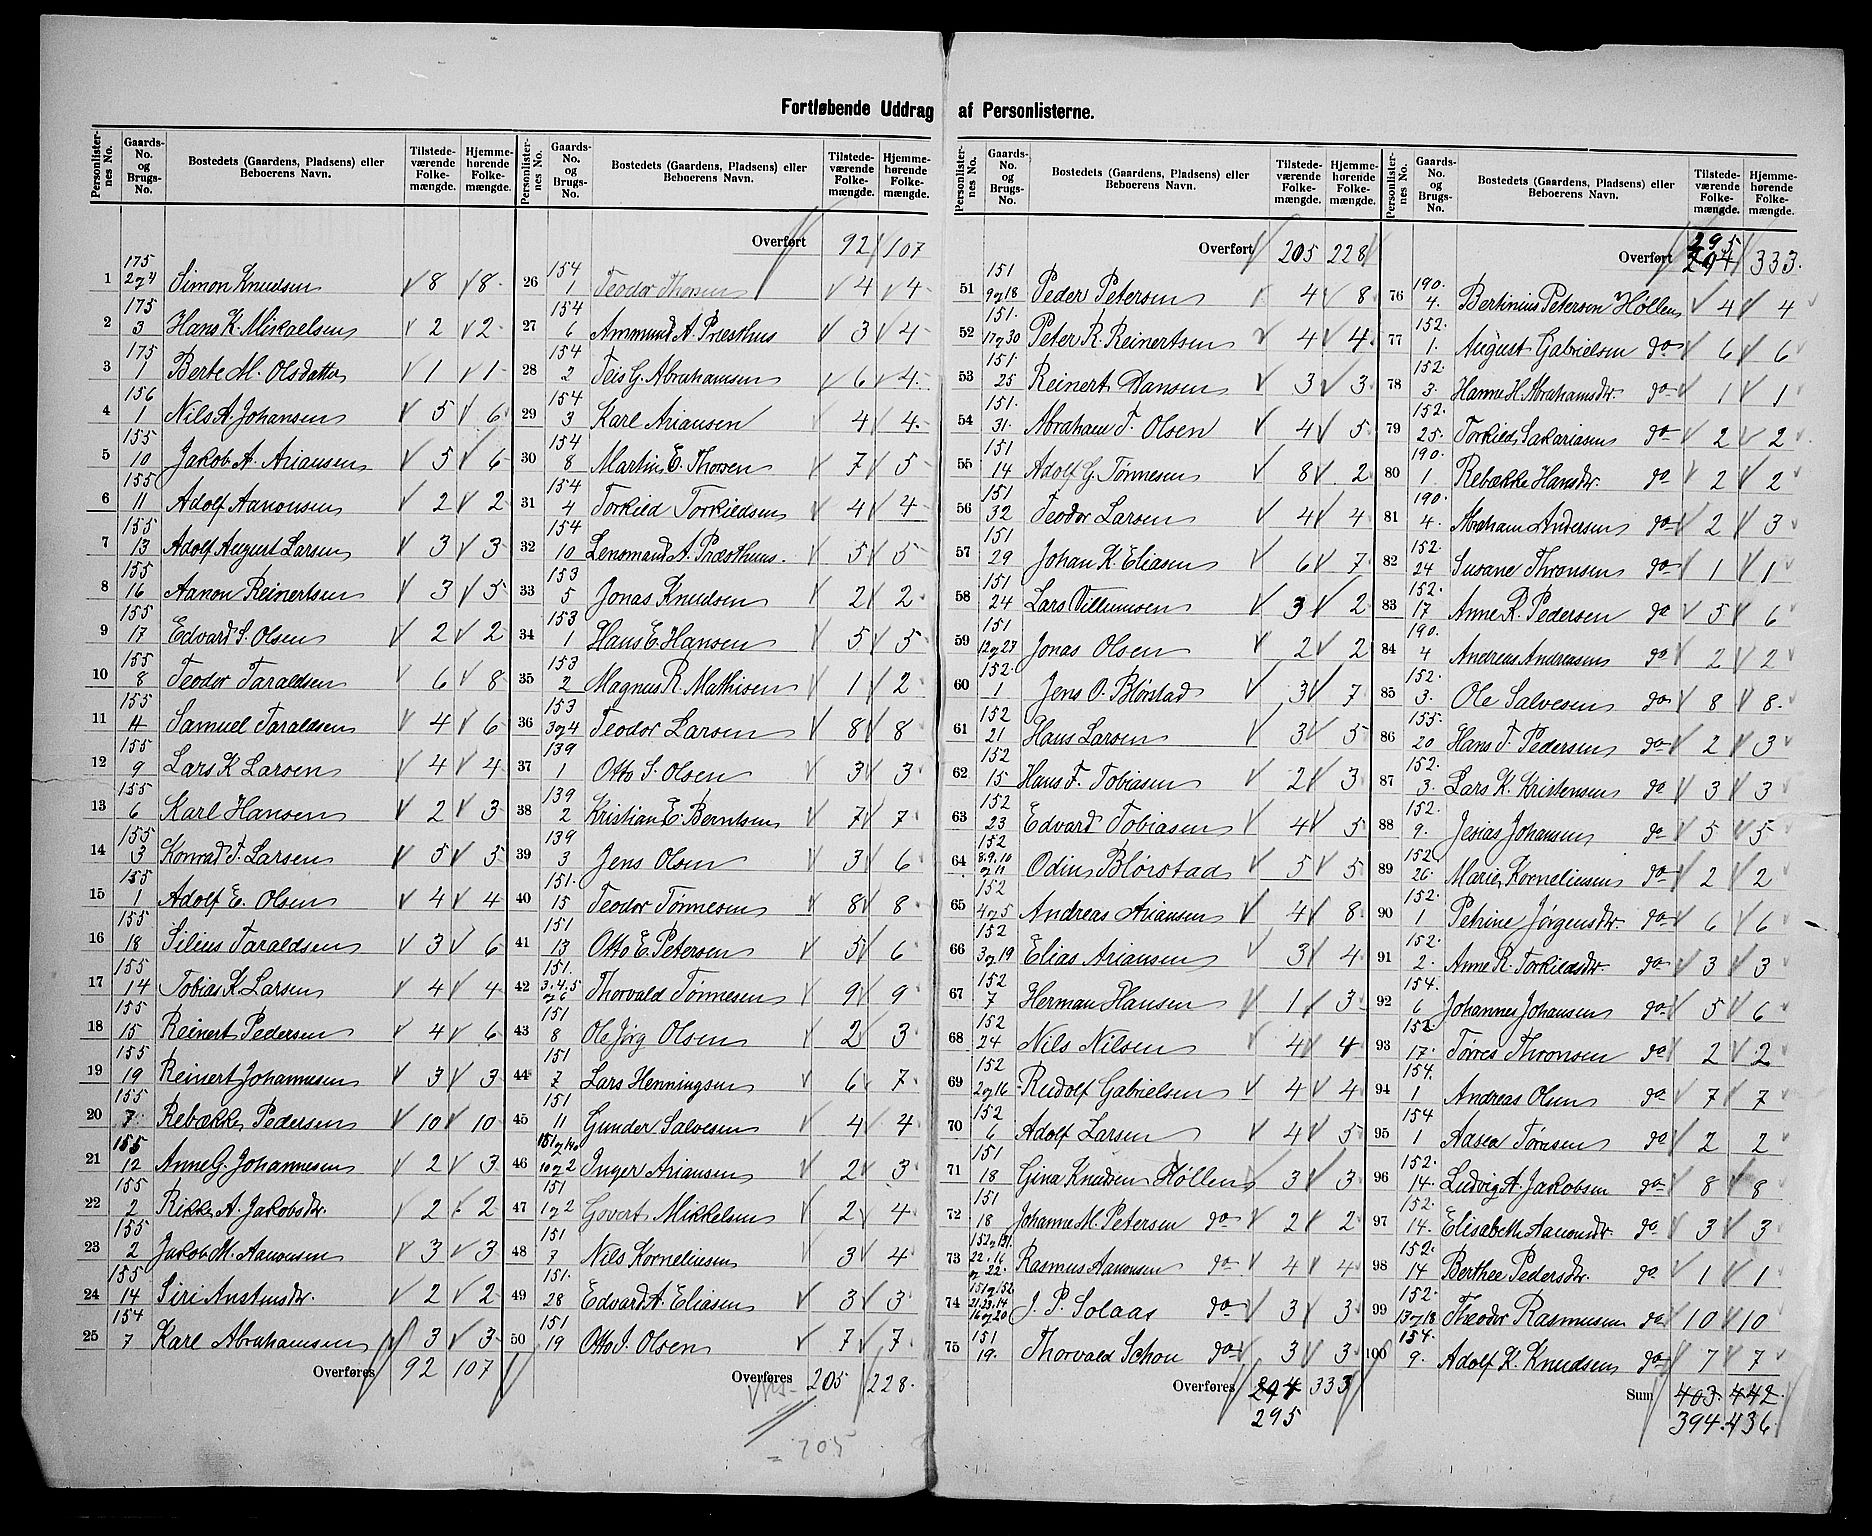 Fortløbende Uddrag af Personlisterne.
Personlisternes No. Gaards-No. og Brugs-No. Bostedets (Gaardens, Pladsens) eller Beboerens Navn. Tilstedeværende Folkemængde. Hjemmehørende Folkemængde.
1 175 2og4 Simon Knudsen 8 8
2 175 3 Hans K. Mikaelsen 2 2
3 175 1 Berte M. Olsdatter 1 1
4 156 1 Nils A. Johansen 5 6
5 155 10 Jakob A. Ariansen 5 6
6 155 11 Adolf Aanonsen 2 2
7 155 13 Adolf August Larsen 3 3
8 155 16 Aanon Reinertsen 3 5
9 155 17 Edvard S. Olsen 2 2
10 155 8 Teodor Taraldsen 6 8
11 155 4 Samuel Taraldsen 4 6
12 155 9 Lars K Larsen 4 4
13 155 6 Karl Hansen 2 3
14 155 3 Konrad T. Larsen 5 5
15 155 1 Adolf E. Olsen 4 4
16 155 18 Silius Taraldsen 3 6
17 155 14 Tobias K. Larsen 4 4
18 155 15 Reinert Pedersen 4 6
19 155 19 Reinert Johannesen 3 3
20 155 7 Rebække Pedersen 10 10
21 155 12 Anne G. Johannesen 2 3
22 155 2 Rikke A. Jakobsdr. 2 2
23 155 2 Jakob M. Aanonsen 3 3
24 155 14 Siri Anstensdr. 2 2
25 154 7 Karl Abrahamsen 3 3
Overføres 92 107
Personlisternes No. Gaards-No. og Brugs-No. Bostedets (Gaardens, Pladsens) eller Beboerens Navn. Tilstedeværende Folkemængde. Hjemmehørende Folkemængde.
Overført 92 107
26 154 1 Teodor Thorsen 4 4
27 154 6 Ammund A. Præsthus 3 4
28 154 2 Teis G. Abrahamsen 6 4
29 154 3 Karl Ariansen 4 4
30 154 8 Martin E. Thorsen 7 5
31 154 4 Torkild Torkildsen 4 4
32 154 10 Lensmand A. Præsthuus. 5 5
33 153 5 Jonas Knudsen 2 2
34 153 1 Hans E. Hansen 5 5
35 153 2 Magnus R. Mathisen 1 2
36 153 3og4 Teodor Larsen 8 8
37 139 1 Otto S. Olsen 3 3
38 139 2 Kristian E. Berntsen 7 7
39 139 3 Jens Olsen 3 6
40 151. 15 Teodor Tønnesen 8 8
41 151 13 Otto E. Petersen 5 6
42 151. 3.4.5 og 6 Thorvald Tønnesen 9 9
43 151 8 Ole Jørg Olsen 2 3
44 151 7 Lars Henningsen 6 7
45 151 11 Gunder Salvesen 4 4
46 10og2 Inger Ariansen 2 3
47 151 1og2 Govert Mikkelsen 2 4
48 151 7 Nils Korneliusen 3 4
49 151. 28 Edvard A. Eliasen 3 3
50 151 19 Otto J. Olsen 7 7
Overføres 205 228.
= 205
Personlisternes No. Gaards-No. og Brugs-No. Bostedets (Gaardens, Pladsens) eller Beboerens Navn. Tilstedeværende Folkemængde. Hjemmehørende Folkemængde.
Overført 205 228
51 151 9og18 Peder Petersen 4 8
52 151. 17og30 Peter R. Reinertsen 4 4
53 151. 25 Reinert Hansen 3 3
54 151. 31. Abraham T. Olsen 4 5
55 151 14 Adolf G. Tønnesen 8 2
56 151 32 Teodor Larsen 4 4
57 151 29 Johan K. Eliasen 6 7
58 151 24 Lars Villumsen 3 2
59 151 12og23 Jonas Olsen 2 2
60 152. 1 Jens O. Blørstad 3 7
61 152 21 Hans Larsen 3 5
62 152 15 Hans F. Tobiasen 2 3
63 152 23 Edvard Tobiasen 4 5
64 152 8.9.10 og 11 Odin Blørstad 5 5
65 152 4og5 Andreas Ariansen 4 8
66 152 3og19 Elias Ariansen 3 4
67 152 7 Herman Hansen 1 3
68 152 24 Nils Nilsen 4 4
69 152 2og16 Rudolf Gabrielsen 4 4
70 152 6 Adolf Larsen 4 5
71 151 18 Gina Knudsen Høllen 3 3
72 151 18 Johanne M. Petersen do 2 2
73 152og151. 22.16 og 22. Rasmus Aanonsen do 4 4
74 151og152 21.23.14 16og20 J. P. Solaas do 3 3
75 151 19. Thorvald Schou do 3 3
Overføres 294 333
295
Personlisternes No. Gaards-No. og Brugs-No. Bostedets (Gaardens, Pladsens) eller Beboerens Navn. Tilstedeværende Folkemængde. Hjemmehørende Folkemængde.
295
Overført 294 333.
76 190. 4. Bertinius Petersen Høllen 4 4
77 152. 1. August Gabrielsen do 6 6
78 152. 3. Hanne H. Abrahamsdr. do 1 1
79 152. 25. Torkild Sakariasen do 2 2
80 190. 1 Rebække Hansdr. do 2 2
81 190. 4. Abraham Andersen do 2 3
82 152. 24 Susane Thronsen do 1 1
83 152. 17 Anne R. Pedersen do 5 6
84 190. 4 Andreas Andreasen do 2 2
85 152. 3. Ole Salvesen do 8 8
86 155. 20 Hans T. Pedersen do 2 3
87 152. 3. Lars K. Kristensen do 3 3
88 152. 9. Jesias Johansen do 5 5
89 152. 26. Marie Korneliusen do 2 2
90 152. 1 Petrine Jørgensdr. do 6 6
91 152. 2. Anne R. Torkildsdr. do 3 3
92 154. 6 Johannes Johansen do 5 6
93 152. 17. Tørres Thronsen do 2 2
94 154. 1 Andreas Olsen do 7 7
95 154 1 Aasea Tønesen do 2 2
96 152. 14. Ludvig A. Jakobsen do 8 8
97 152. 14. Elisabeth Aanonsdr. do 3 3
98 152. 14 Berthee Pedersdr. do 1 1
99 152. 13og18 Theodor Rasmusen do 10 10
100 154. 9. Adolf K. Knudsen do 7 7
Sum 403. 442.
394. 436.